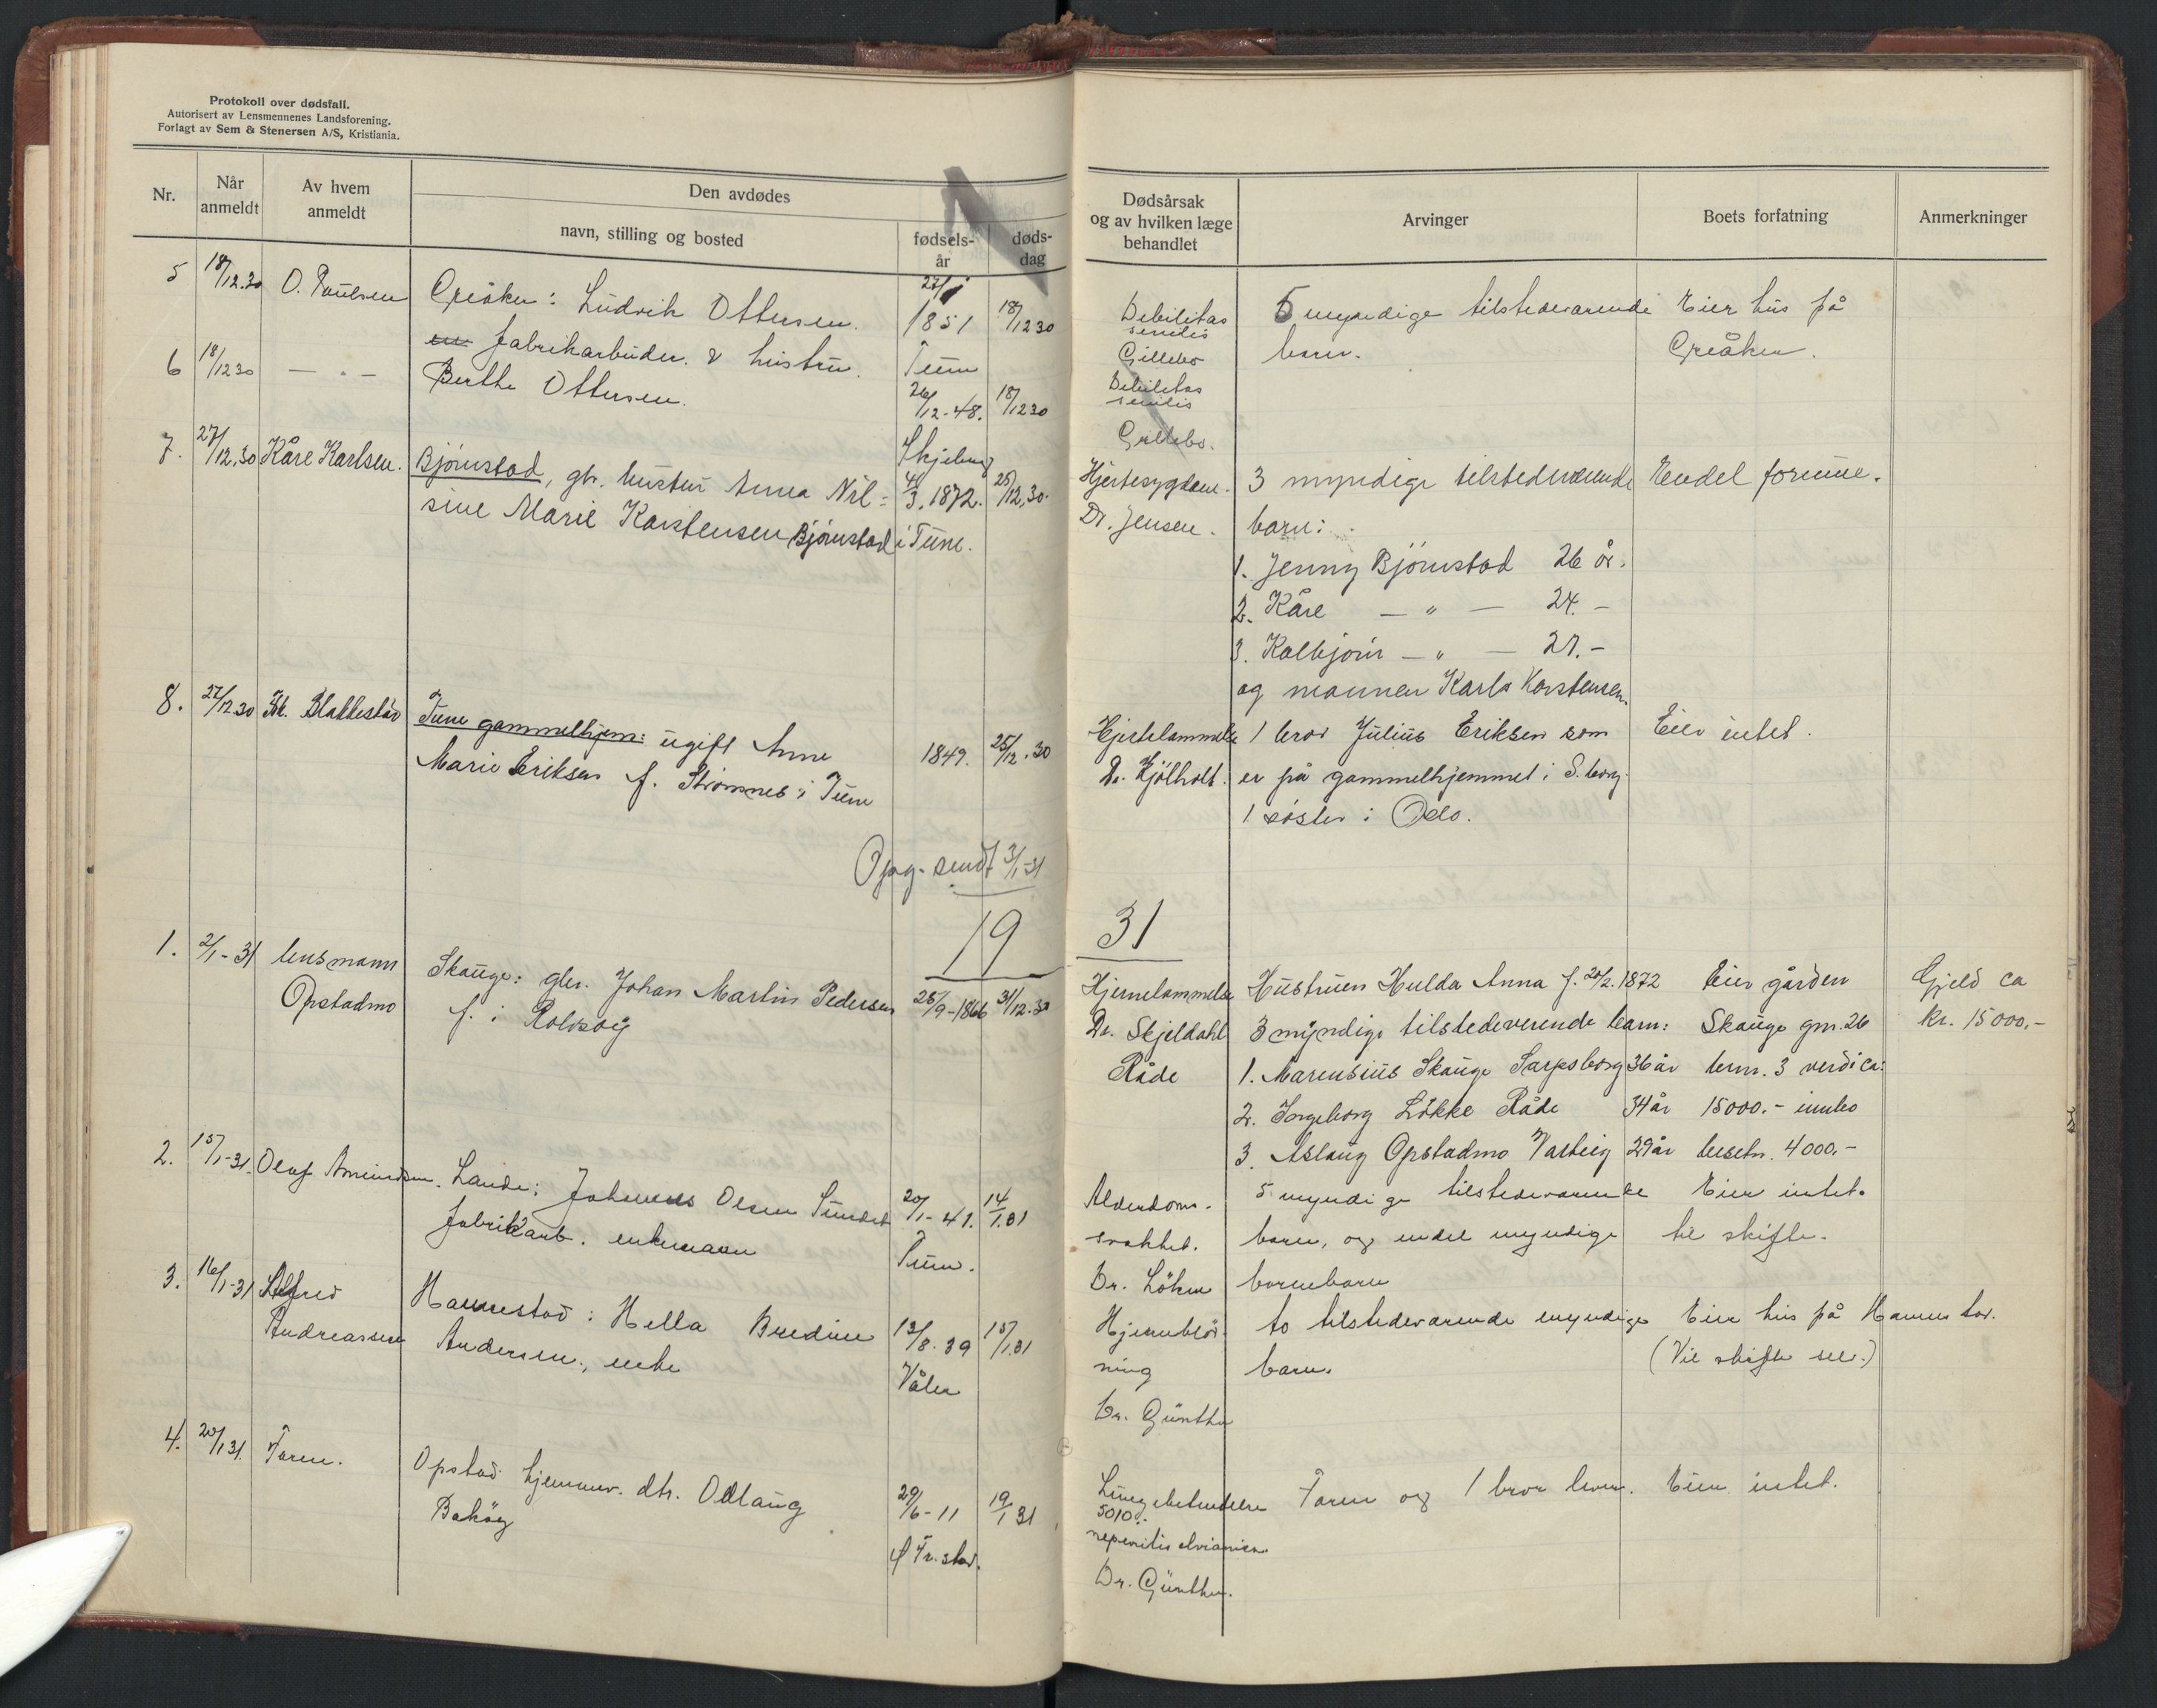 Protokoll over dødsfall.
Autorisert av Lensmennenes Landsforening.
Forlagt av Sem & Stenersen A/S, Kristiania.
Nr.
Når anmeldt
Av hvem anmeldt
Den avdødes
navn, stilling og bosted
fødsels-år
døds-dag
5 18/12.30 O. Paulsen Greåker: Ludvik Ottersen. 1851 18/12 30
fabrikarbeider. & hustru. Tune
6 18/12 30 — " — Berthe Ottersen. 26/12-48. 18/12 30
Skjeberg
7. 27/12.30 Kåre Karlsen. Bjørnstad, gbr. hustru Anna Nil- 4/3.1872. 25/12.30.
sine Marie Karstensen Bjørnstad i Tune.
8. 27/12 30 Blakkestad Tune gammelhjem: ugift Anne 1849. 25/12.30
Marie Eriksen f. Strømnes i Tune
Opg. sendt 3/1-31
19
1. 2/1-31 lensmann Skauge: gbr. Johan Martin Pedersen 25/9-1866 31/12.30
Opstadmo f. i Rolvsøy
2. 15/1-31. Olaf Amundsen. Lande: Johannes Olsen Sundet 20/1-41. 14/1.31
fabrikarb. enkemann Tune.
3. 16/1-31 Alfred Hannestad: Hella Bredine 13/8.39 15/1.31
Andreassen Andersen, enke Våler
4. 20/1 31. Faren. Opstad hjemmev. dtr. Odlaug 29/6-11 19/1 31
Bakøy f Fr.stad.
Dødsårsak
og av hvilken læge
behandlet
Arvinger
Boets forfatning
Anmerkninger
Debilitas 5 myndige tilstedevarende Eier hus på
senilis
Gillebo barn. Greåker.
Debilitas
senilis
Gillebo.
Hjertesygdom. 3 myndige tilstedeværende Endel formue.
Dr. Jensen. barn:
1. Jenny Bjørnstad 26 år.
2. Kåre — " — 24. –
3. Kolbjørn — " — 21. –
og mannen Karls Karstensen
Hjertelammelse 1 bror Julius Eriksen som Eier intet.
Dr. Kjölholt. er på gammelhjemmet i S.borg.
1 søster i Oslo.
31
Hjernelammelse Hustruen Hulda Anna f. 20/2.1872 Eier gården Gjeld ca
Dr. Skjeldahl 3 myndige tilstedeverende barn: Skauge gnr. 26 kr. 15000,-
Råde 1. Marensius Skauge Sarpsborg 36 år brnr. 3 verdi ca:
2. Ingeborg Løkke Råde 34 år 15000.- innbo
3. Aslaug Opstadmo Varteig 29 år besetn. 4000.-
Alderdoms- 5 myndige tilstedevarende Eier intet.
svakhet. barn, og endel myndige til skifte.
Dr. Löhm barnebarn
Hjerneblød- to tilstedevarende myndige Eier hus på Hannestad.
ning barn. (Vil skifte selv.)
Dr. Günther
Lungebetendelse Faren og 1 bror lever. Eier intet.
5010.-
Dr. Günther.